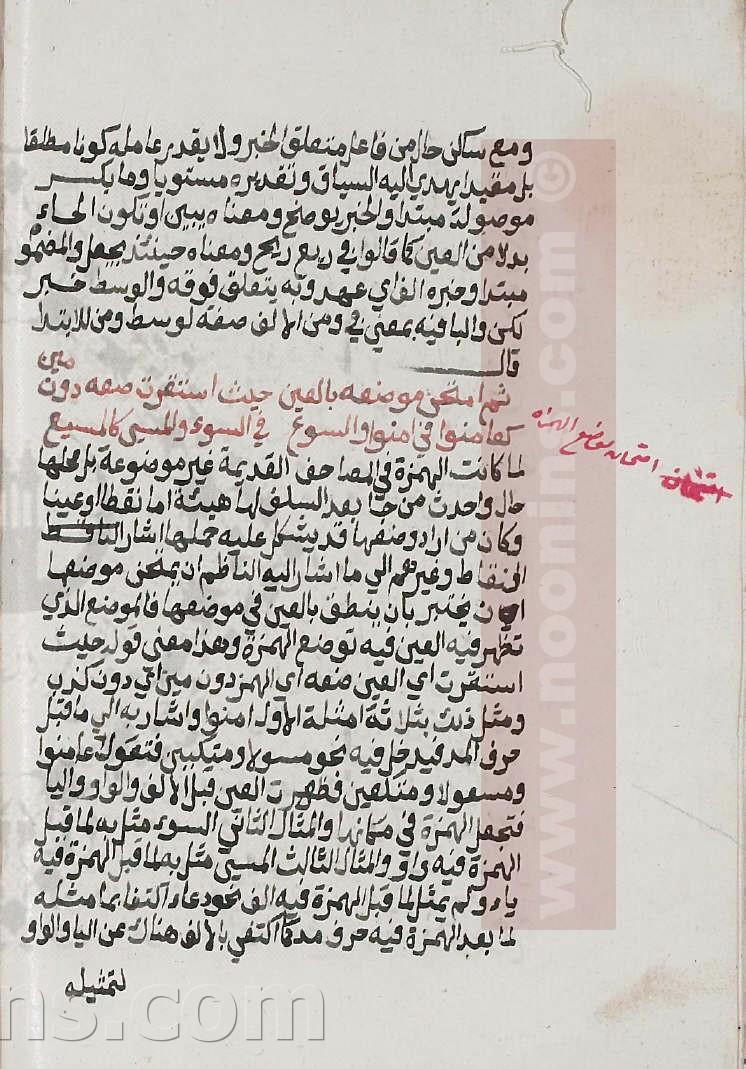 ومع سكن حال من فاعل متعلق الخبر ولا يقدر عامله كونا مطلقا
بل مقيدا يهدي اليه السياق وتقديره مستويا وما يكسر
موصولة مبتدا والخبر يوضح ومعناه يبين او تكون الحاء
بدلا من العين كما قالوا في ربع ربح ومعناه حينئذ يجعل والمضموم
مبتدا وخبره الف اي عهد وبه يتعلق فوقه والوسط خبر
لكن والبا فيه بمعنى في ومن الالف صفة لوسط ومن للابتدا
قال
ثم امتحن موضعه بالعين حيث استقرت ضعه دون مين
كعامنوا في امنوا والسوع في السوء والمسيء كالمسيع
لما كانت الهمزة في المصاحف القديمة غير موضوعة بل محلها
خال واحدث من جا بعد السلف لها هيئة اما نقطا او عينا
وكان من اراد وضعها قد يشكل عليه محلها اشار الناظم
النقاط وغيرهم الي ما اشار اليه الناظم ان يمتحن موضعها
اي ان يختبر بان ينطق بالعين في موضعها فالموضع الذي
تظهر فيه العين فيه توضع الهمزة وهذا معنى قوله حيث
استقرت اي العين ضعه اي الهمز دون مين اي دون كذب
ومثل ذلك بثلاثة امثلة الاول امنوا واشار به الي ما قبل
حرف المد فيدخل فيه نحو مسولا ومتكيين فتقول عامنوا
ومسعولا ومتكعين فظهرت العين قبل الالف والواو واليا
فتجعل الهمزة في مكانها والمثال الثاني السوء مثل به لما قبل
الهمزة فيه واو والمثال الثالث المسيء مثل به لما قبل الهمزة فيه
ياء ولم يمثل لما قبل الهمزة فيه الف نحو دعاء اكتفا بما مثله
لما بعد الهمزة فيه حرف مد كما اكتفي بالالف هناك عن اليا والواو
لتمثيله
امتحان موضع الهمزه
www.nooning.com ©
ns.com